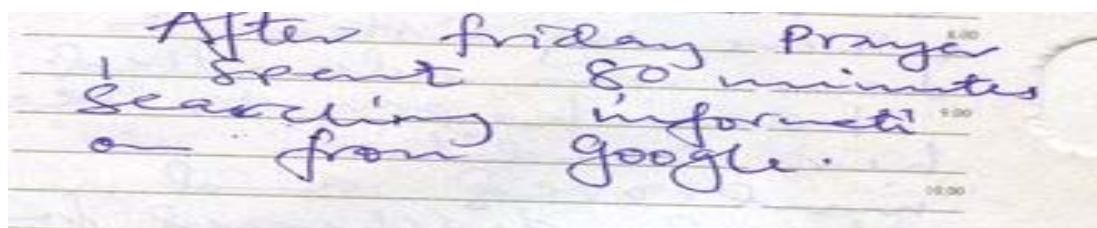 After friday Prayer
8:00
I spent 80 minutes
searching informati
9:00
on from google.
10:00